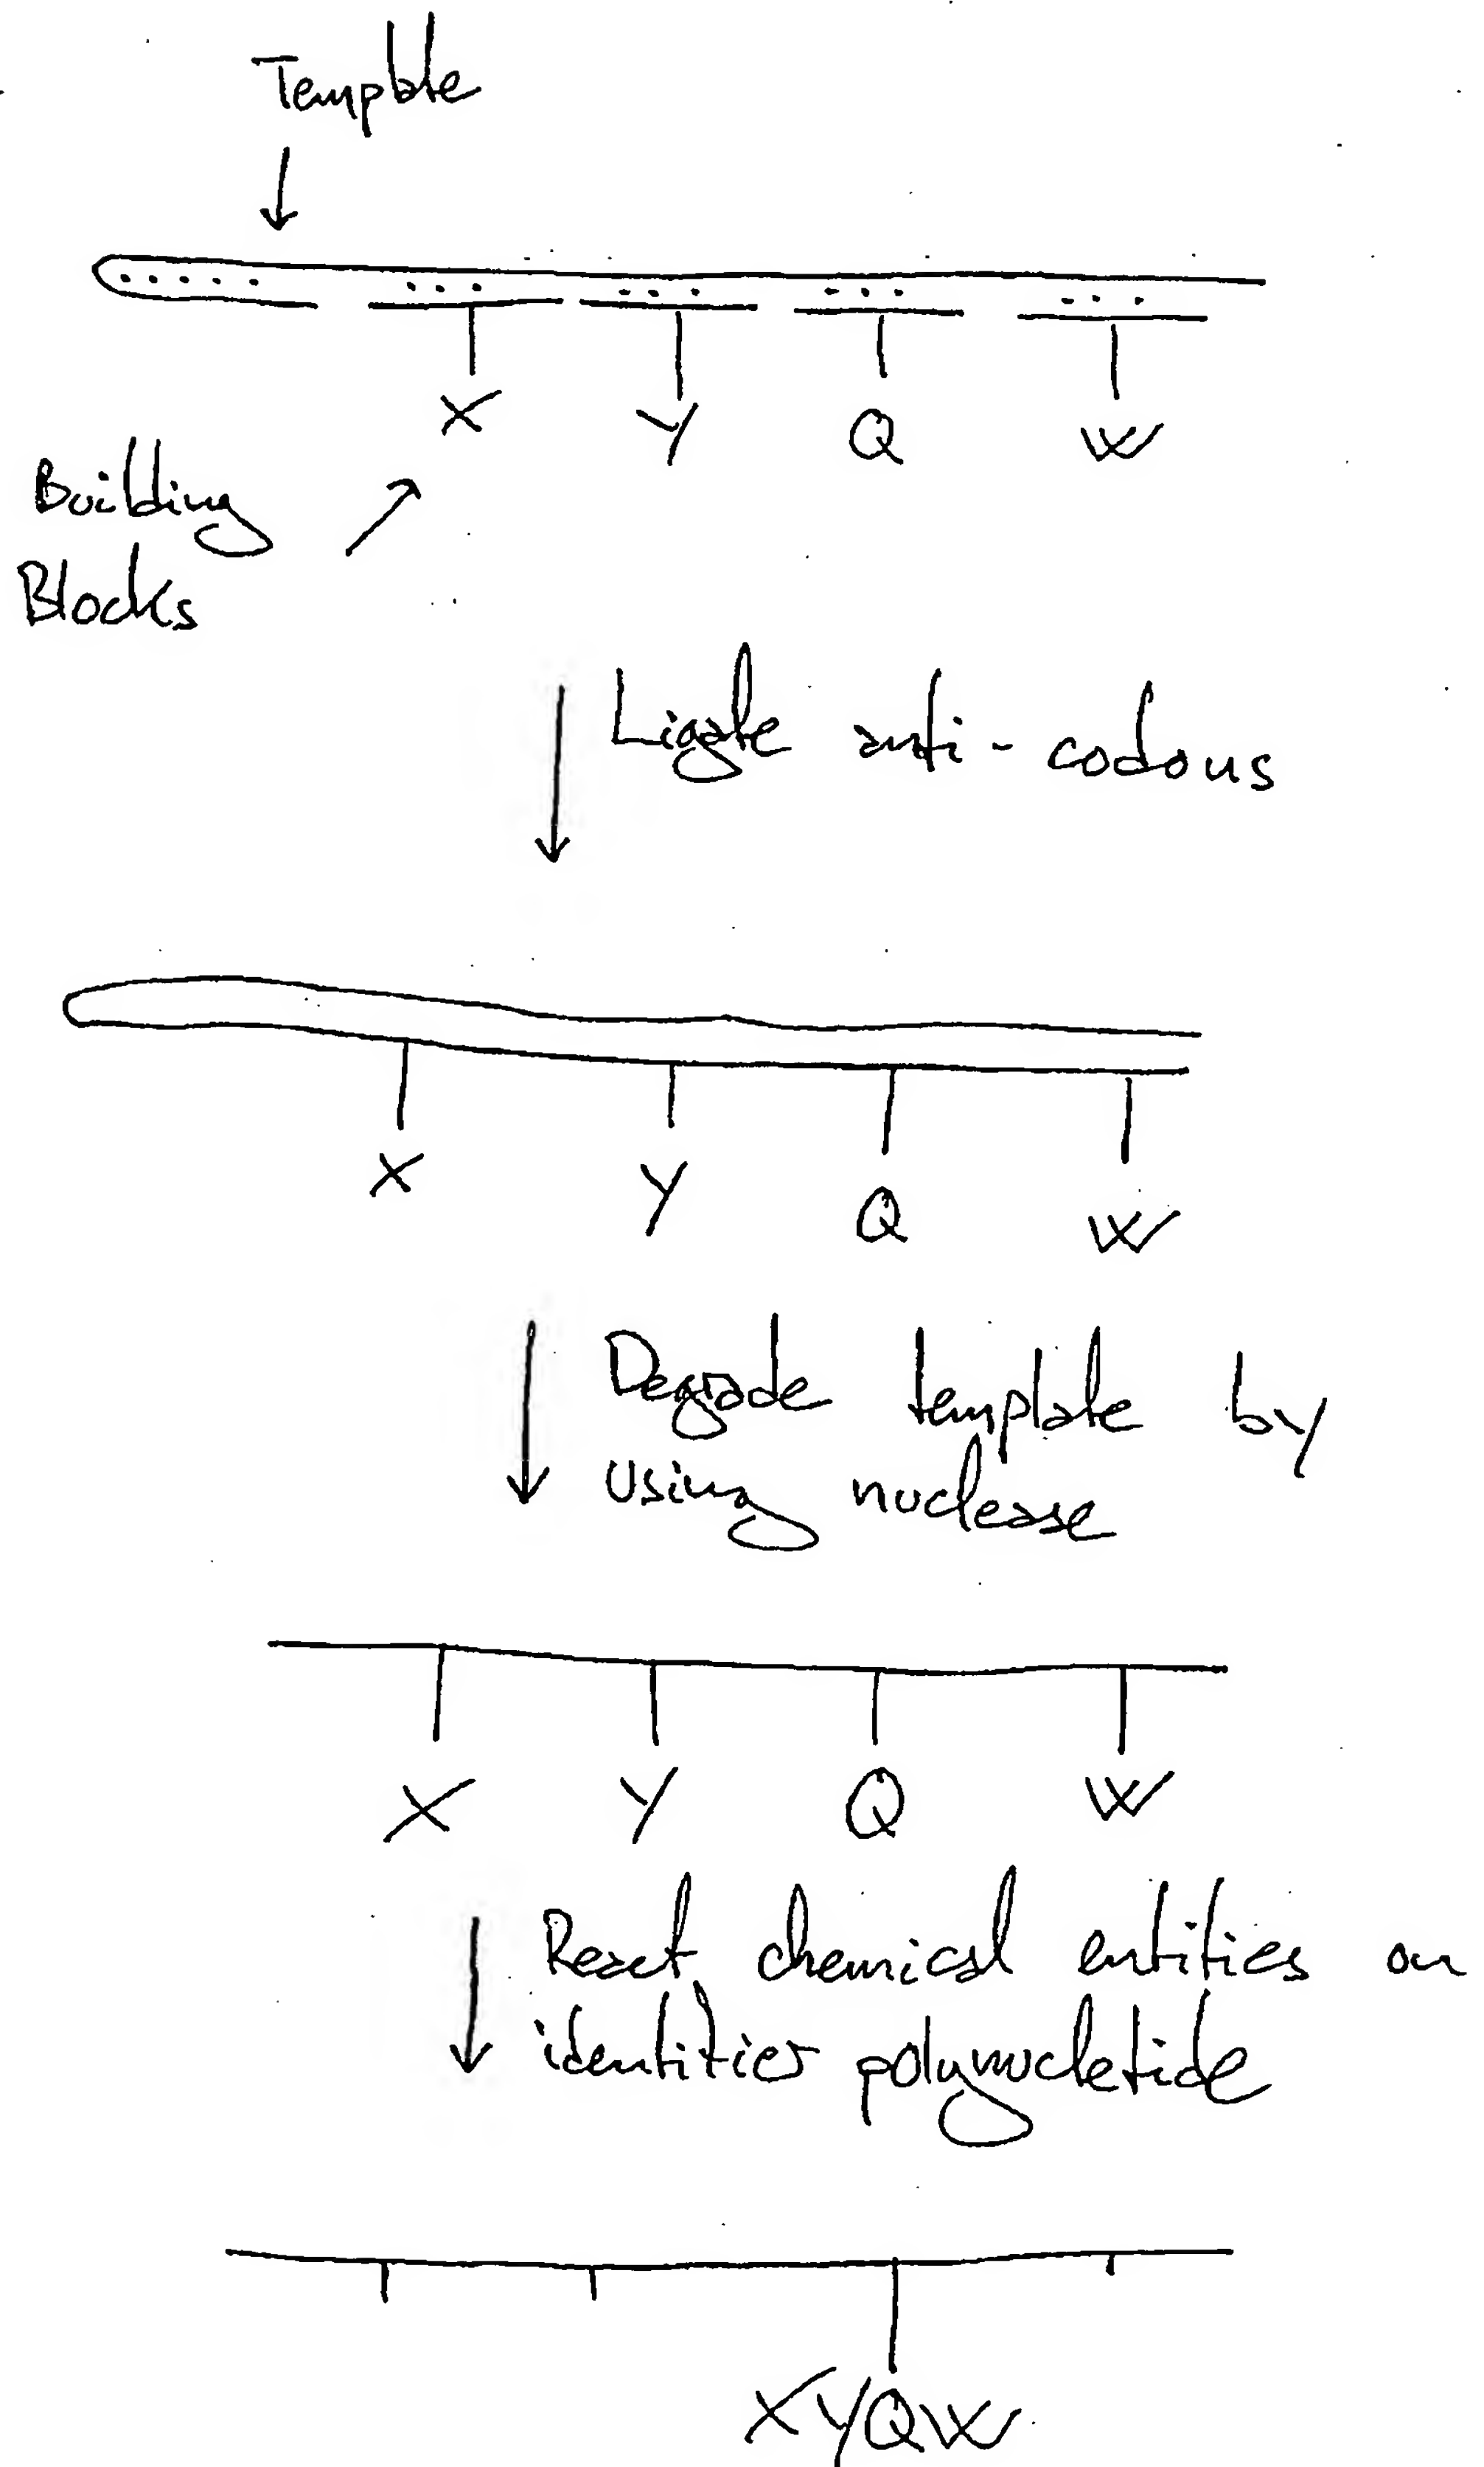 Template
X Y Q W
Building
Blocks
Ligate anti-codons
X Y Q W
Degrade template by
using nuclease
X Y Q W
React chemical entities on
identifier polynucletide
XYQW